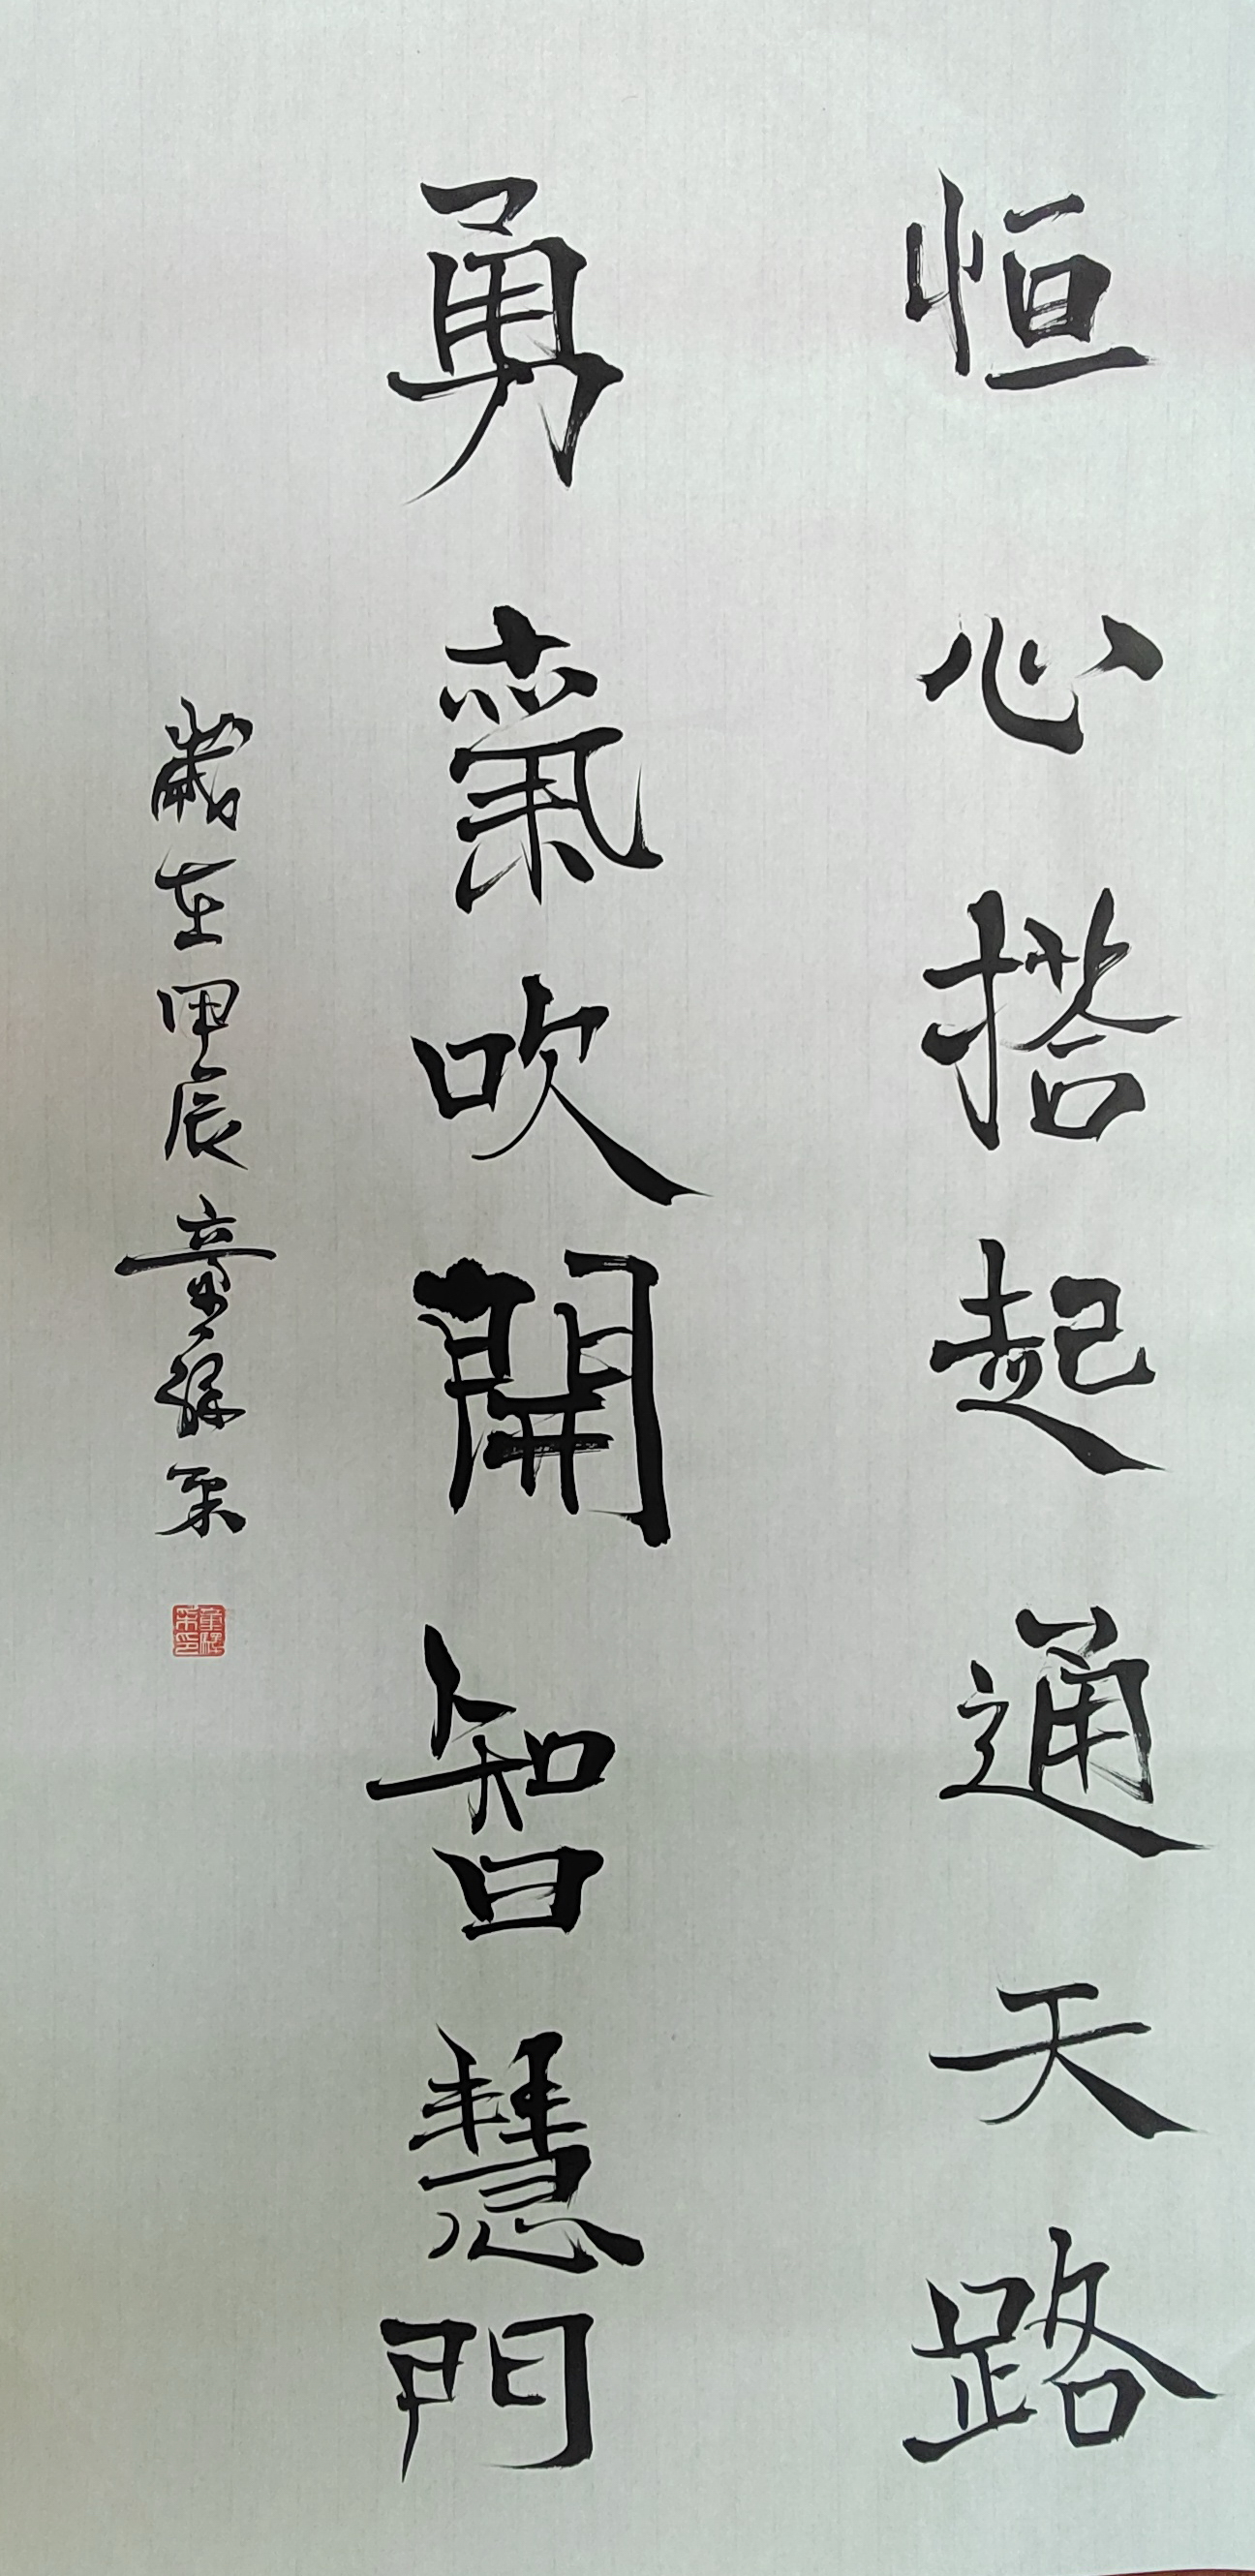 恒心搭起通天路
勇氣吹開智慧門
歲在甲辰